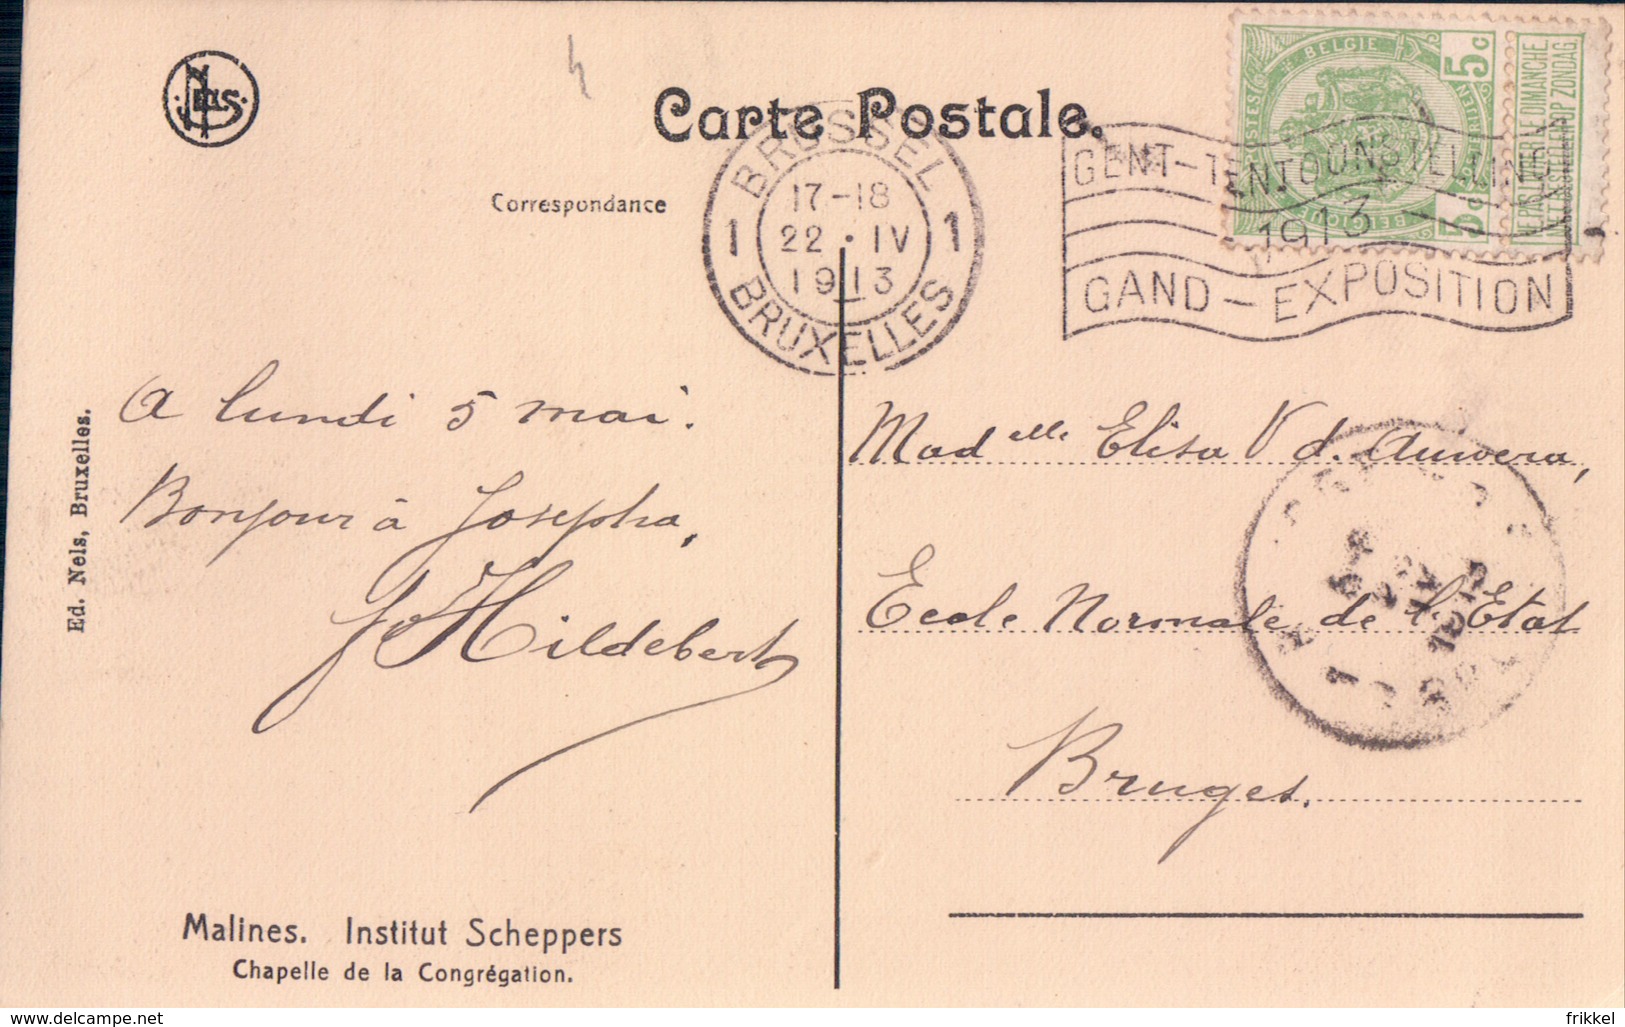 Nels
Carte Postale.
Correspondance
BRUSSEL
1 1
17-18
22 · IV
1913
BRUXELLES
GENT-TENTOONSTELLING
1913
GAND-EXPOSITION
BELGIE
5c
5c
BELGIQUE
NE PAS LIVRER LE DIMANCHE
NIET BESTELLEN OP ZONDAG
A lundi 5 mai.
Bonjour à Josepha,
Hildebert
Madelle Elisa V d. Auwera,
Ecole Normale de l'Etat
Bruges.
IV
1913
Ed. Nels, Bruxelles.
Malines. Institut Scheppers
Chapelle de la Congrégation.
www.delcampe.net
frikkel